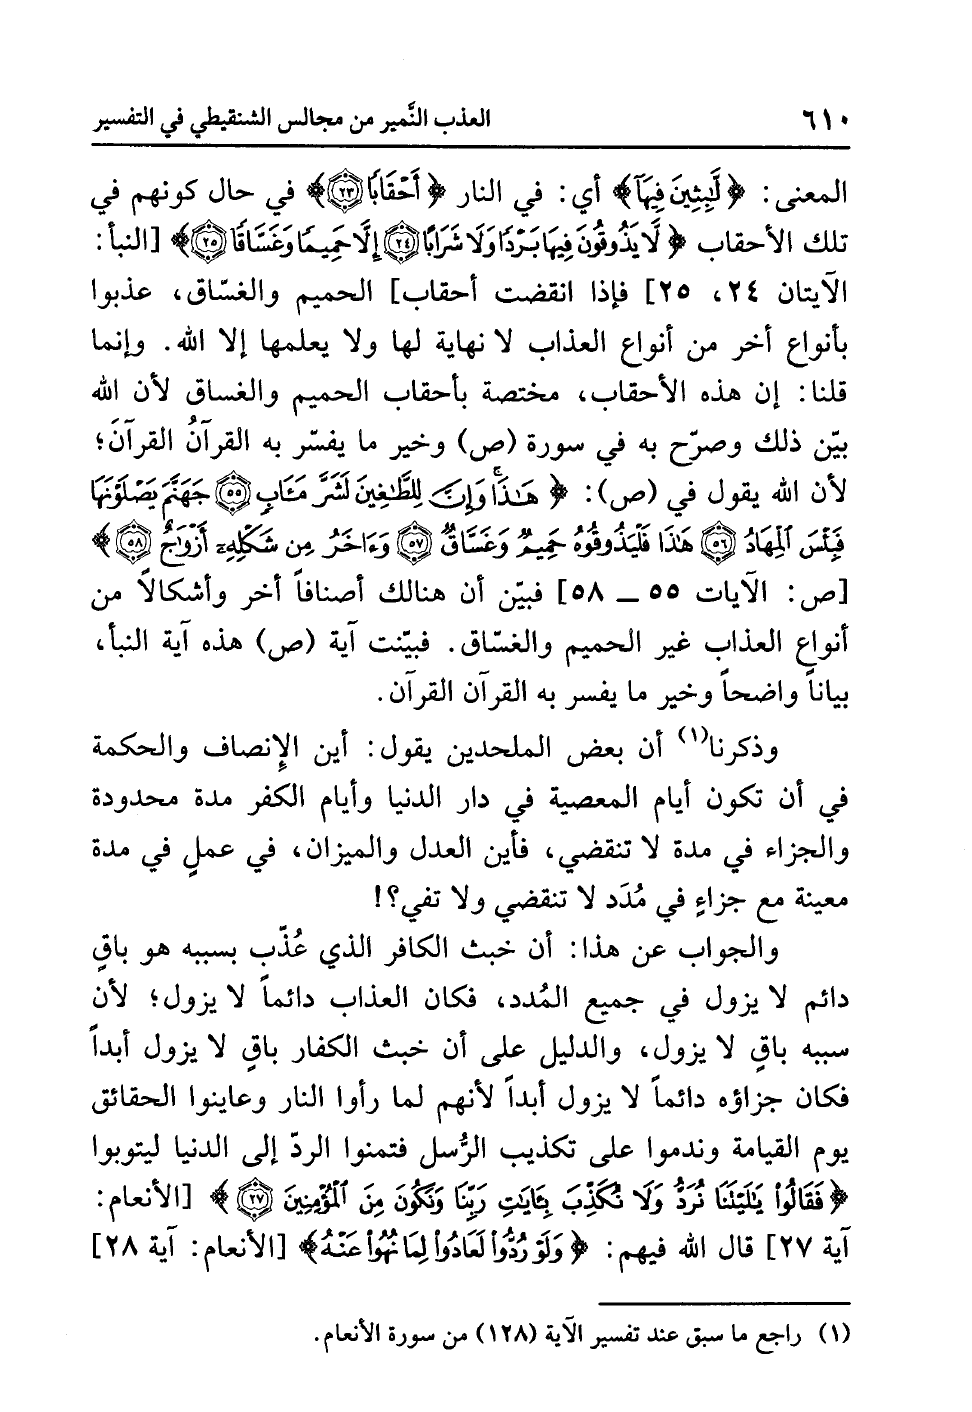 ٦١٠ العذب النَّمير من مجالس الشنقيطي في التفسير
المعنى: ﴿لَّٰبِثِينَ فِيهَآ﴾ أي: في النار ﴿أَحۡقَابٗا ٢٣﴾ في حال كونهم في
تلك الأحقاب ﴿لَّا يَذُوقُونَ فِيهَا بَرۡدٗا وَلَا شَرَابًا ٢٤ إِلَّا حَمِيمٗا وَغَسَّاقٗا ٢٥﴾ [النبأ:
الآيتان ٢٤، ٢٥] فإذا انقضت أحقاب] الحميم والغسّاق، عذبوا
بأنواع أخر من أنواع العذاب لا نهاية لها ولا يعلمها إلا الله. وإنما
قلنا: إن هذه الأحقاب، مختصة بأحقاب الحميم والغساق لأن الله
بيّن ذلك وصرّح به في سورة (ص) وخير ما يفسّر به القرآنُ القرآنَ؛
لأن الله يقول في (ص): ﴿هَٰذَاۚ وَإِنَّ لِلطَّٰغِينَ لَشَرَّ مَـَٔابٖ ٥٥ جَهَنَّمَ يَصۡلَوۡنَهَا
فَبِئۡسَ ٱلۡمِهَادُ ٥٦ هَٰذَا فَلۡيَذُوقُوهُ حَمِيمٞ وَغَسَّاقٞ ٥٧ وَءَاخَرُ مِن شَكۡلِهِۦٓ أَزۡوَٰجٌ ٥٨﴾
[ص: الآيات ٥٥ ــ ٥٨] فبيّن أن هنالك أصنافاً أخر وأشكالاً من
أنواع العذاب غير الحميم والغسّاق. فبيّنت آية (ص) هذه آية النبأ،
بياناً واضحاً وخير ما يفسر به القرآن القرآن.
وذكرنا(١) أن بعض الملحدين يقول: أين الإِنصاف والحكمة
في أن تكون أيام المعصية في دار الدنيا وأيام الكفر مدة محدودة
والجزاء في مدة لا تنقضي، فأين العدل والميزان، في عملٍ في مدة
معينة مع جزاءٍ في مُدَد لا تنقضي ولا تفي؟!
والجواب عن هذا: أن خبث الكافر الذي عُذّب بسببه هو باقٍ
دائم لا يزول في جميع المُدد، فكان العذاب دائماً لا يزول؛ لأن
سببه باقٍ لا يزول، والدليل على أن خبث الكفار باقٍ لا يزول أبداً
فكان جزاؤه دائماً لا يزول أبداً لأنهم لما رأوا النار وعاينوا الحقائق
يوم القيامة وندموا على تكذيب الرُّسل فتمنوا الردّ إلى الدنيا ليتوبوا
﴿فَقَالُواْ يَٰلَيۡتَنَا نُرَدُّ وَلَا نُكَذِّبَ بِـَٔايَٰتِ رَبِّنَا وَنَكُونَ مِنَ ٱلۡمُؤۡمِنِينَ ٢٧﴾ [الأنعام:
آية ٢٧] قال الله فيهم: ﴿وَلَوۡ رُدُّواْ لَعَادُواْ لِمَا نُهُواْ عَنۡهُ﴾ [الأنعام: آية ٢٨]
(١) راجع ما سبق عند تفسير الآية (١٢٨) من سورة الأنعام.